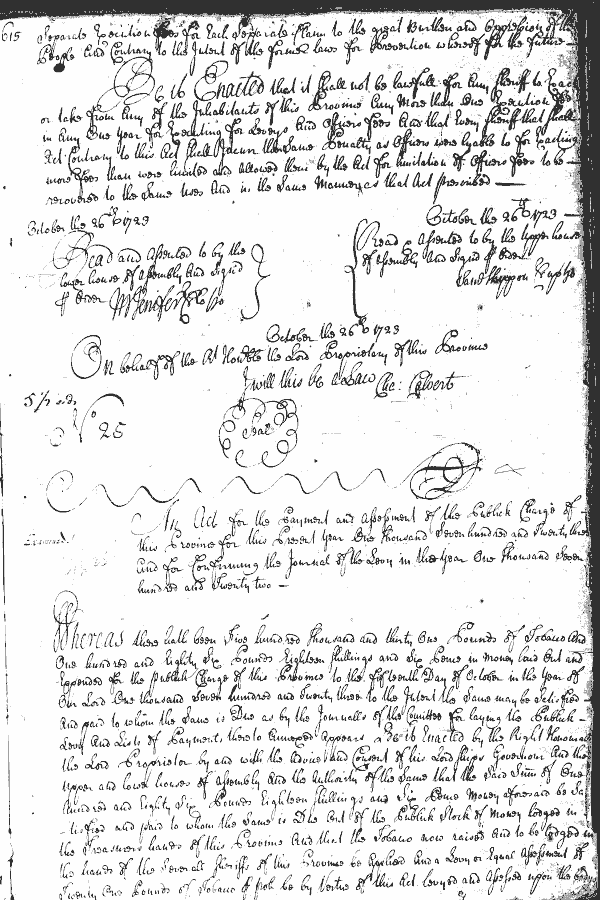 615
Separate Execution Fees for Each Separate Claim to the great Burthen and Oppression of the
People And Contrary to the Intent of the former laws for prevention whereof for the future
Be it Enacted that it shall not be lawfull for Any Sheriff to Exact
or take from Any of the Inhabitants of this Province Any More than One Execution Fee
in Any One Year for Executing for Levys And Officers Fees And that Every Sheriff that shall
Act Contrary to this Act shall Incurr the Same Penalty as Officers were lyable to for Exacting
more Fees than were limited and Allowed them by the Act for limitation of Officers Fees to be
recovered to the Same Uses And in the Same Manner as that Act prescribed
October the 26th 1723
Read and Assented to by the
lower house of Assembly And Signd
p Order M Jenifer Cl
October the 26th 1723
Read & Assented to by the Upper house
of Assembly And Signd p Order
Sam Skippon
October the 26th 1723
On behalf of the Rt Honble the Lord Proprietary of this Province
I will this be a Law Cha: Calvert
No 25
Seal
An Act for the Payment and Assessment of the Publick Charge of
this Province for this Present Year One thousand Seven hundred and Twenty three
And for Confirming the Journal of the Levy in the Year One Thousand Seven
hundred and Twenty two
Whereas there hath been Five hundred thousand and thirty One Pounds of Tobacco And
One hundred and Eighty Six Pounds Eighteen shillings and Six Pence in Money laid Out and
Expended for the publick Charge of this Province to the fifteenth Day of October in the Year of
Our Lord One thousand Seven hundred and Twenty three to the Intent the Same may be Satisfied
And paid to whom the Same is Due as by the Journalls of the Comittee for laying the Publick
Levy And Lists of Payments thereto Annexed Appears Be it Enacted by the Right Honourable
the Lord Proprietor by and with the Advice and Consent of his Lordships Governour And the
Upper and lower houses of Assembly And the Authority of the Same that the Said Summ of One
hundred and Eighty Six Pounds Eighteen shillings and Six Pence Money aforesaid be Sa
tisfied and paid to whom the Same is Due Out of the Publick Stock of Money lodged in
the Treasurers hands of this Province And that the Tobacco now raised And to be lodged in
the hands of the Severall Sheriffs of this Province be Applied And a Levy or Equal Assessment of
Twenty One Pounds of Tobacco p poll be by Vertue of this Act levyed and Assessed upon the